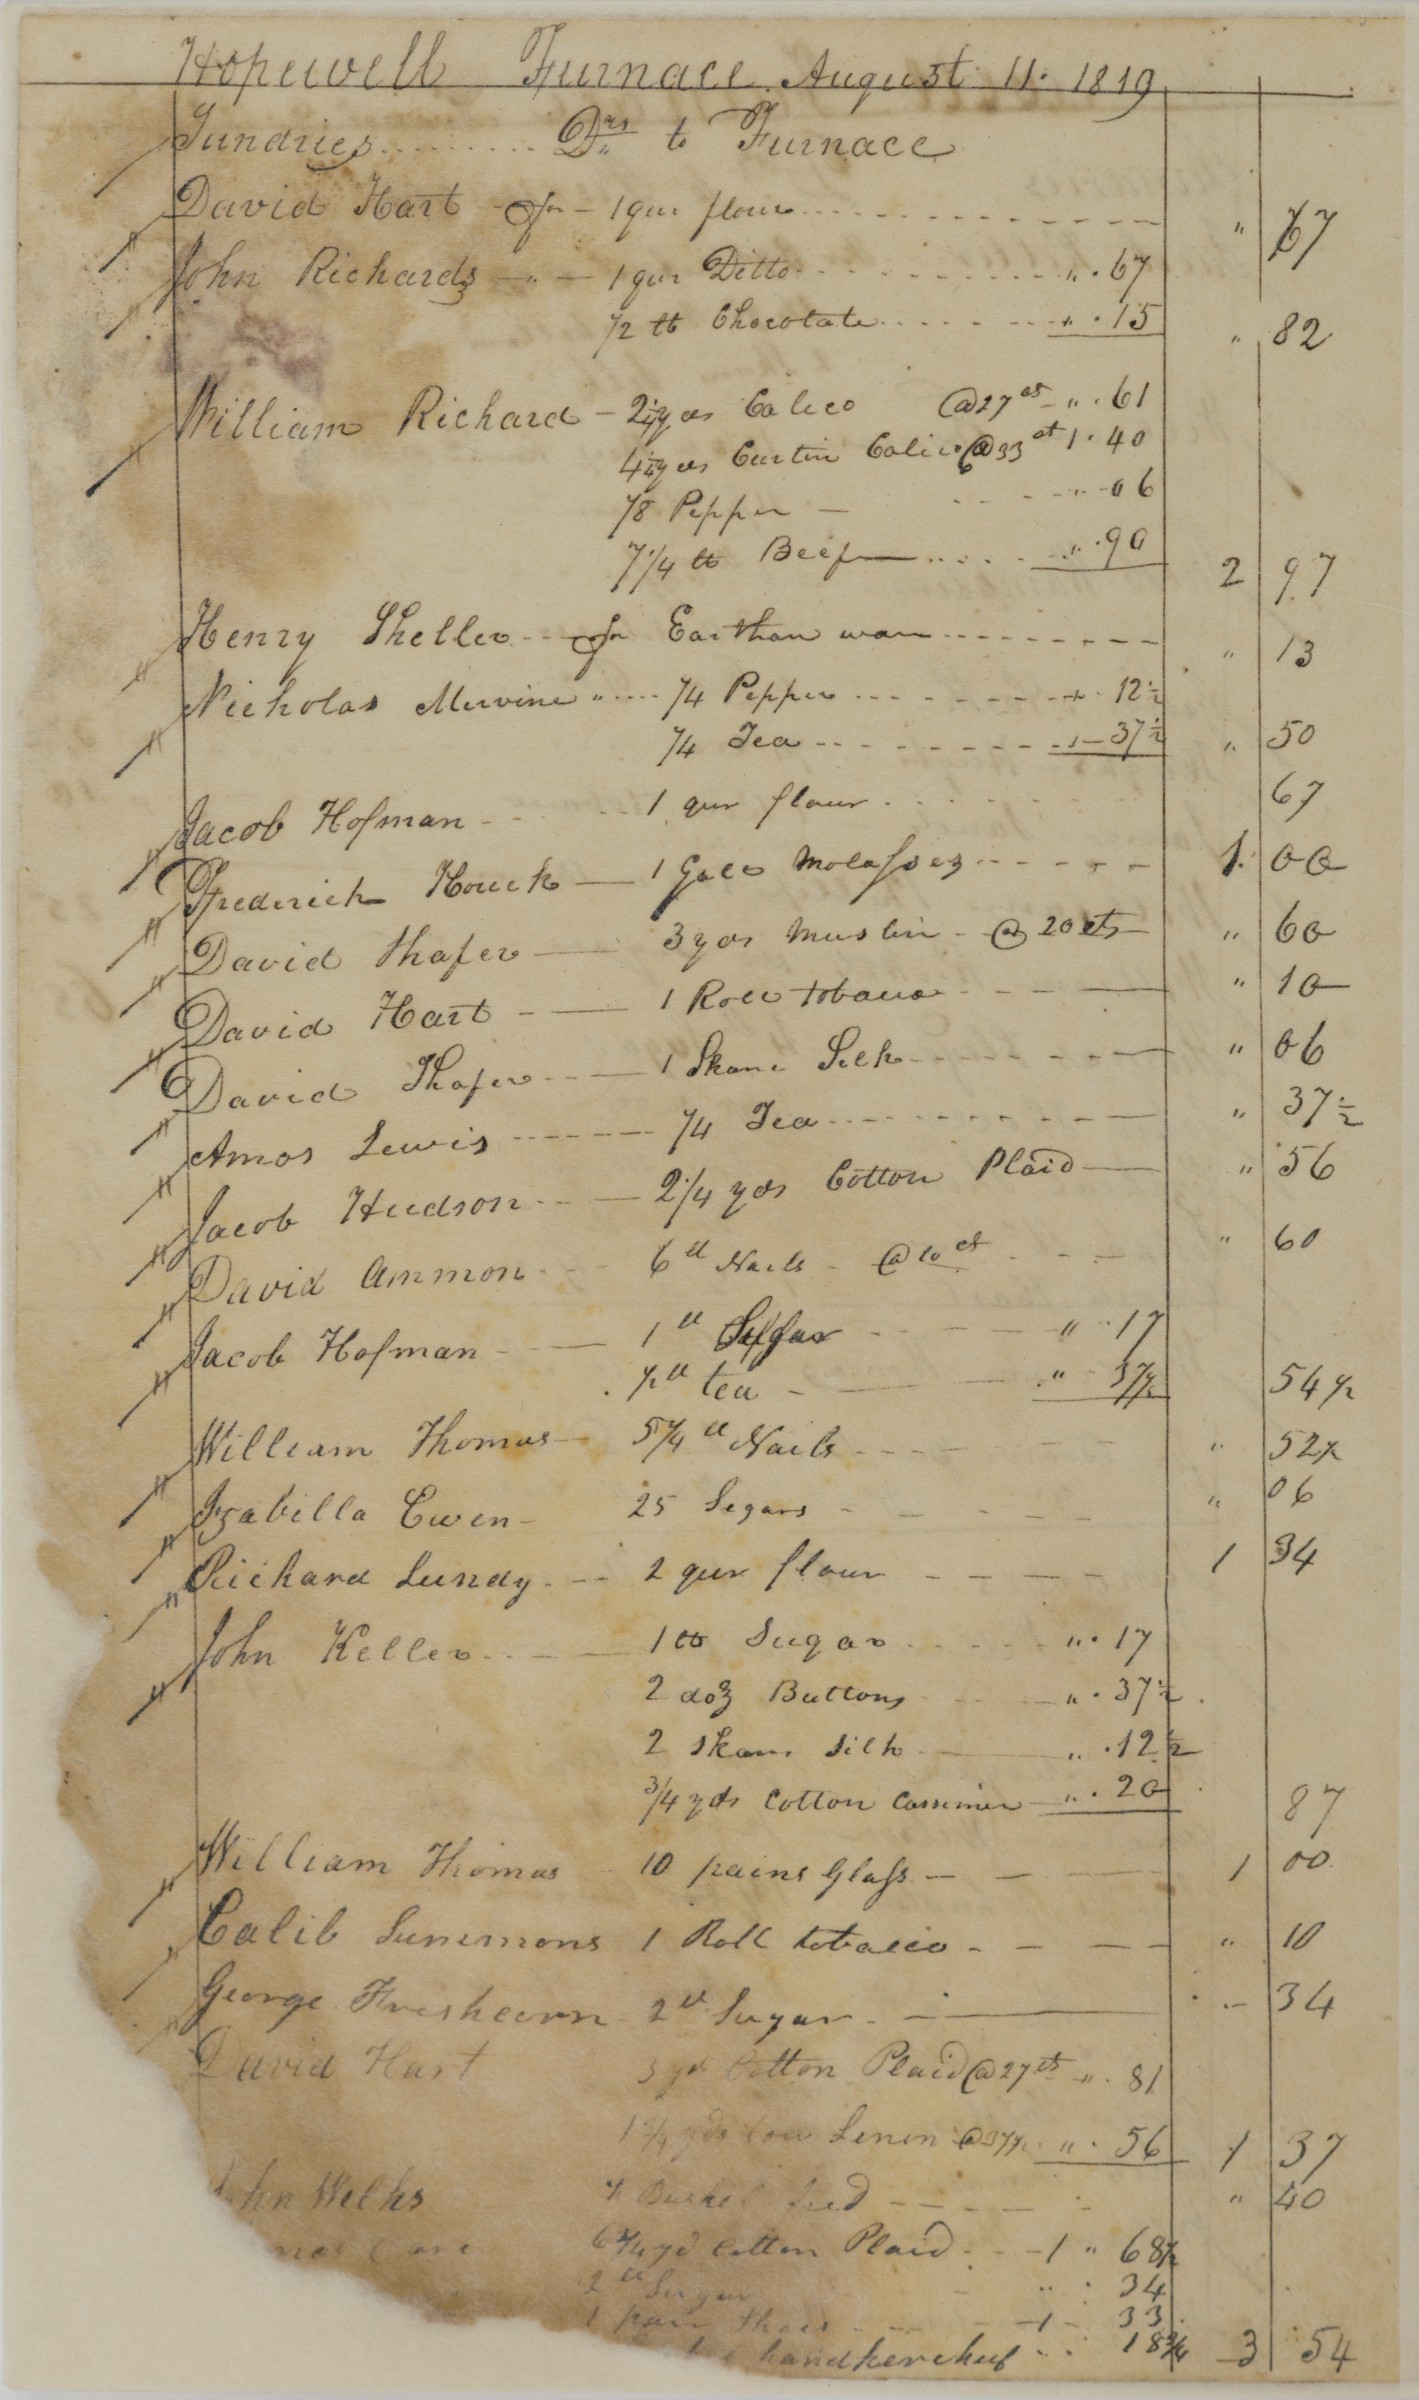 Hopewell Furnace August 11. 1819
Sundries ......... Drs to Furnace
David Hart - for - 1 qur flour " 67
John Richards - " - 1 qur Ditto " . 67
1/2 lb Chocolate " . 15 " 82
William Richard - 2 1/4 yds Calico @ 27 cts " . 61
4 1/4 yds Curtin Calico @ 33 ct 1 . 40
1/8 Pepper - " - 06
7 1/4 lb Beef " . 90 2 97
Henry Sheller - for Earthan ware " 13
Nicholas Mervine " 1/4 Pepper " 12 1/2
1/4 Tea " 37 1/2 " 50
Jacob Hofman 1 qur flour 67
Frederick Houck - 1 Gall Molasses 1. 00
David Shafer - 3 yds Muslin - @ 20 cts " 60
David Hart - 1 Roll tobacco " 10
David Shafer - 1 Skane Silk " 06
Amos Lewis - 1/4 Tea " 37 1/2
Jacob Hudson - 2 1/4 yds Cotton Plaid " 56
David Ammon 6 ll Nails - @ 10 ct " 60
Jacob Hofman - 1 ll Sugar " . 17
1/2 ll tea - " 37 1/2 54 1/2
William Thomas - 5 1/4 ll Nails " 52 1/2
Izabilla Cwen - 25 Segars - " 06
Richard Lundy - 2 qur flour 1 34
John Keller 1 lb Sugar " . 17
2 doz Buttons " . 37 1/2
2 Skane Silk " . 12 1/2
3/4 yds Cotton Cassimer " . 20 87
William Thomas 10 pains Glass - 1 00
Calib Summons 1 Roll tobacco - " 10
George Freshcorn 2 ll Sugar - " 34
David Hart 3 yds Cotton Plaid @ 27 cts " . 81
1 1/2 yds tow Linen @ 37 1/2 " . 56 1 37
John Welks 1/2 Bushel feed " 40
6 1/4 yd Cotton Plaid 1 " 68 1/2
2 ll Sugar " . 34
1 pair Shoes 1 - 33
handkercheif 18 3/4 3 54